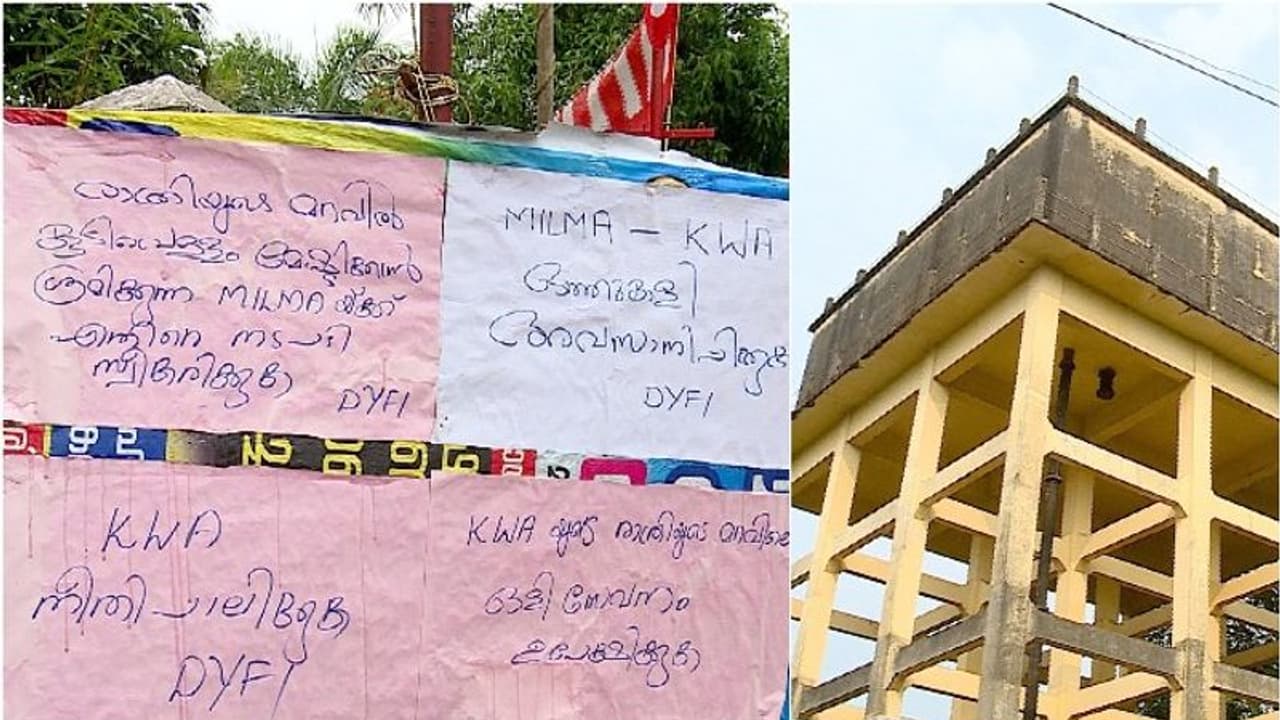 രാത്രിയുടെ മറവിൽ
കുടിവെള്ളം മോഷ്ടിക്കാൻ
ശ്രമിക്കുന്ന MILMA യ്ക്ക്
എതിരെ നടപടി
സ്വീകരിക്കുക
DYFI
MILMA - KWA
ഒത്തുകളി
അവസാനിപ്പിക്കുക
DYFI
KWA
നീതി പാലിക്കുക
DYFI
KWA യുടെ രാത്രിയുടെ മറവിലെ
ഒളി സേവനം
ഉപേക്ഷിക്കുക